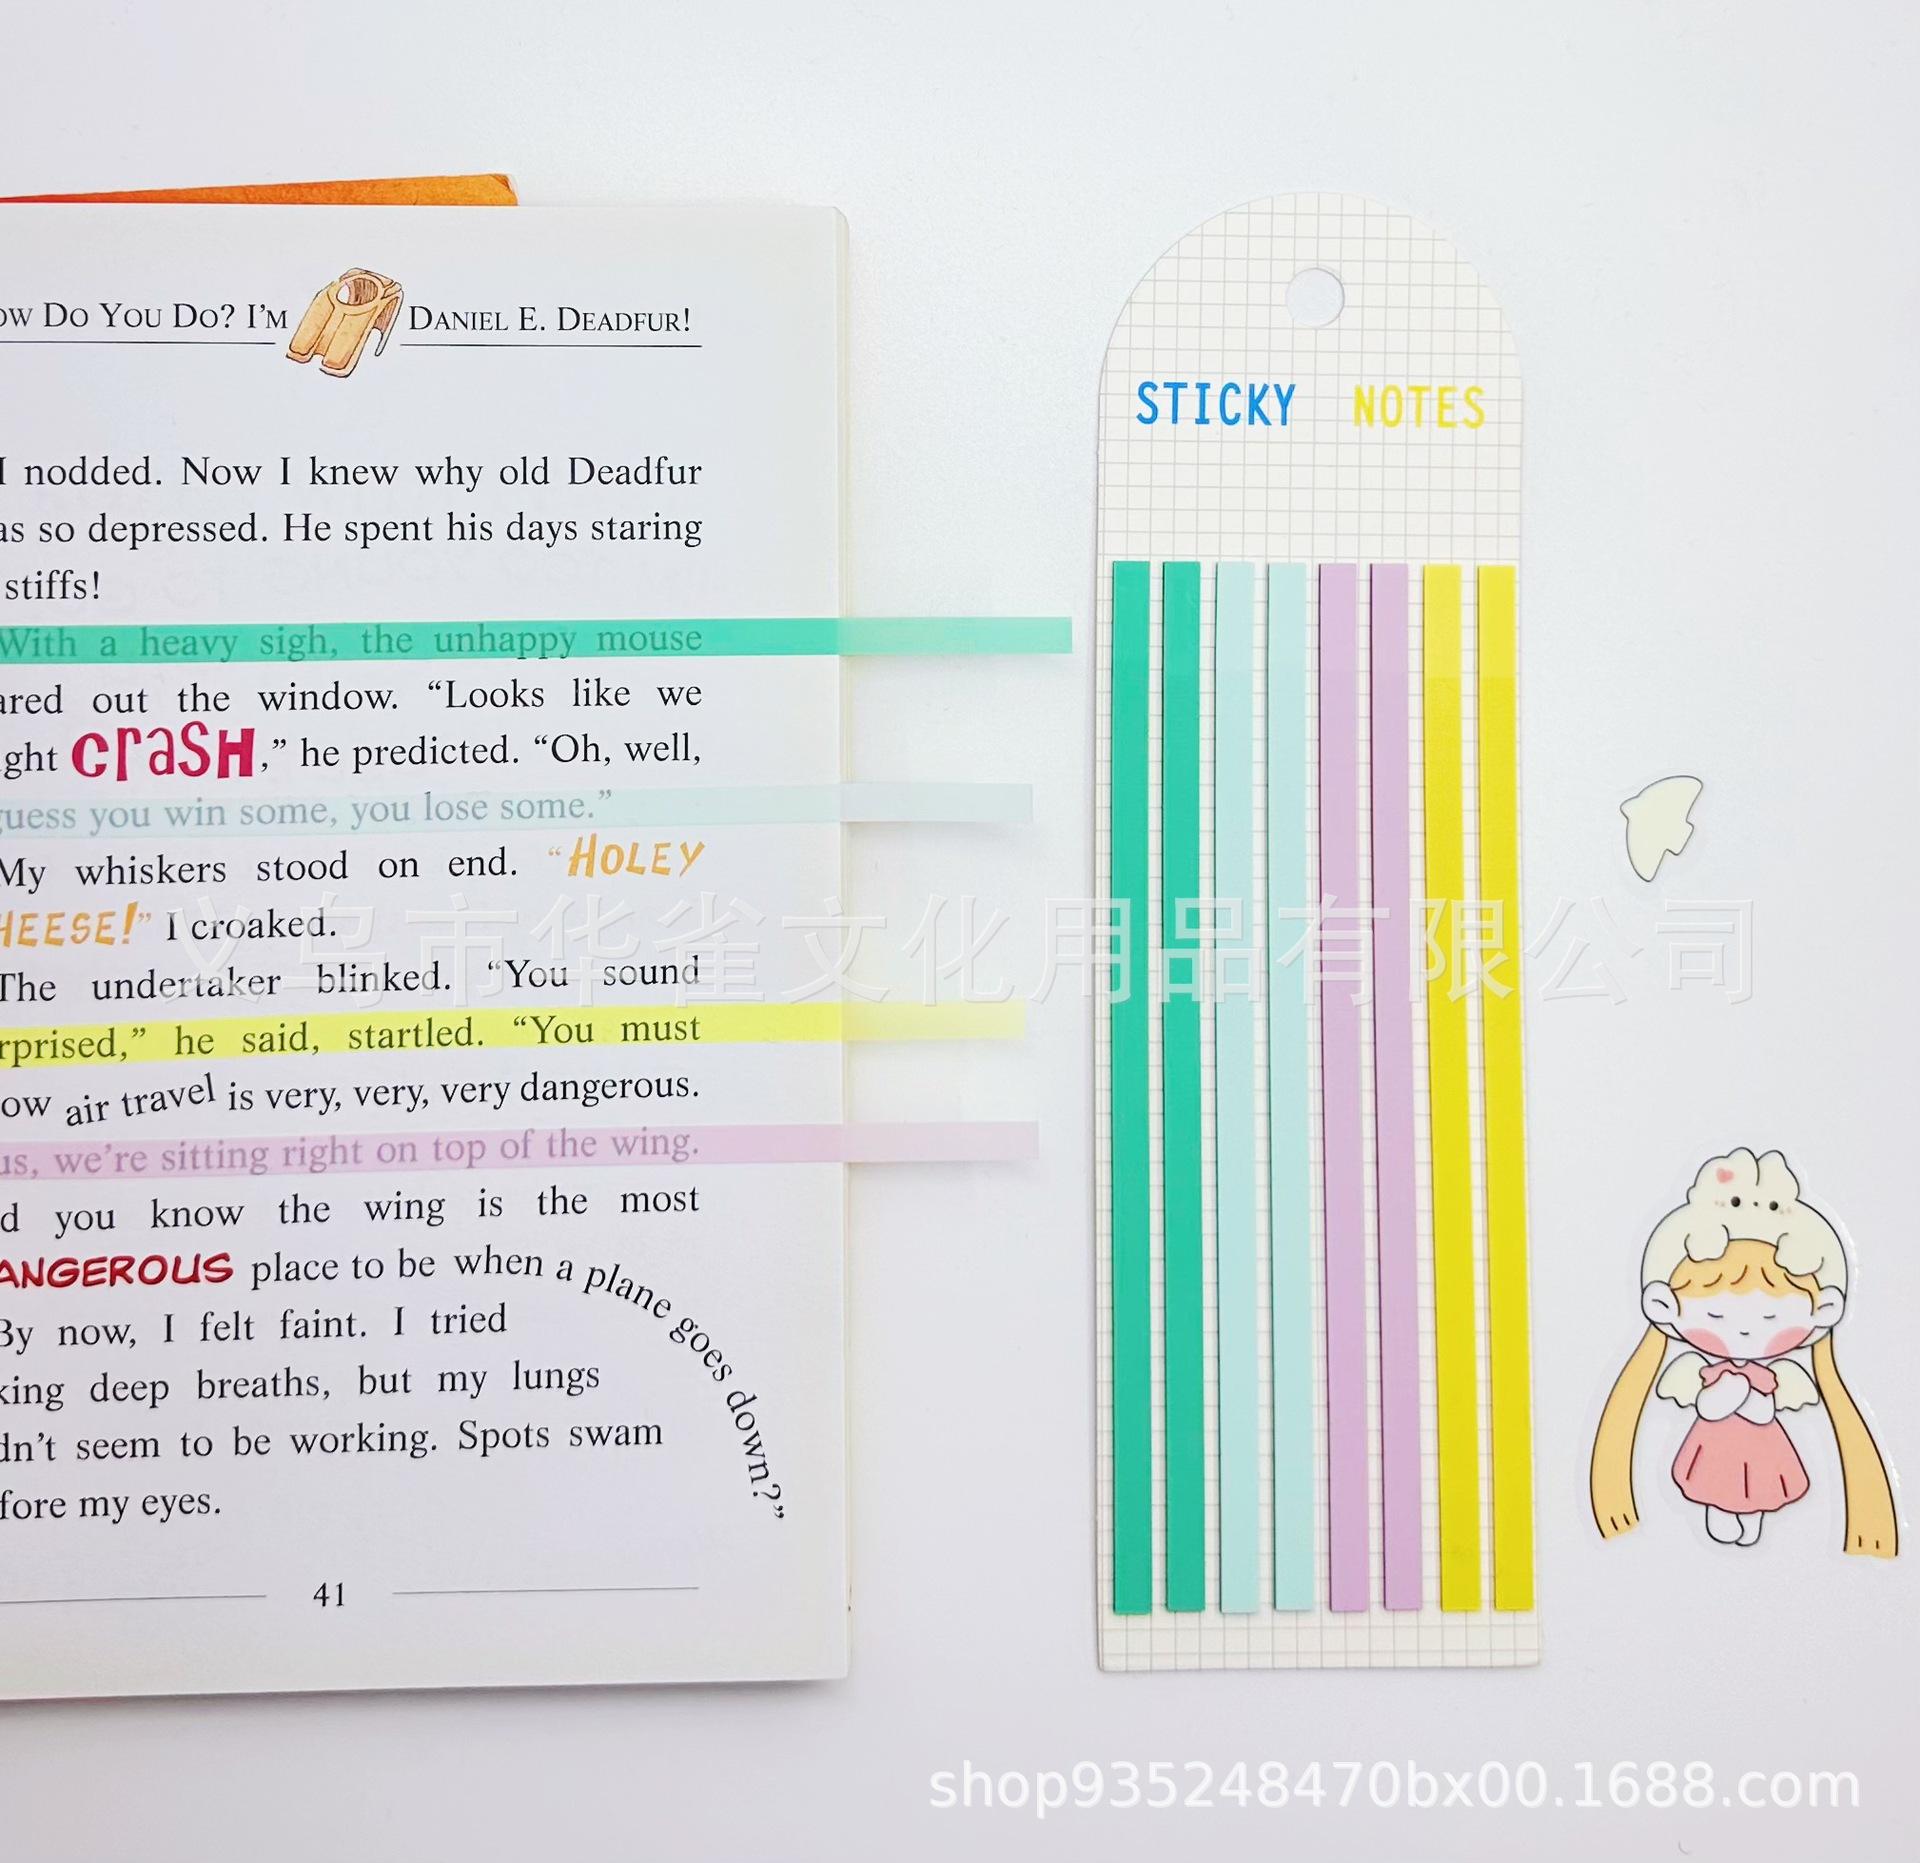 ow Do You Do? I'm Daniel E. Deadfur!
I nodded. Now I knew why old Deadfur
as so depressed. He spent his days staring
stiffs!
With a heavy sigh, the unhappy mouse
ared out the window. “Looks like we
ght CRASH,” he predicted. “Oh, well,
guess you win some, you lose some.”
My whiskers stood on end. “HOLEY
HEESE!” I croaked.
The undertaker blinked. “You sound
rprised,” he said, startled. “You must
ow air travel is very, very, very dangerous.
us, we're sitting right on top of the wing.
d you know the wing is the most
ANGEROUS place to be when a plane goes down?”
By now, I felt faint. I tried
king deep breaths, but my lungs
dn't seem to be working. Spots swam
fore my eyes.
41
STICKY NOTES
义乌市华雀文化用品有限公司
shop935248470bx00.1688.com